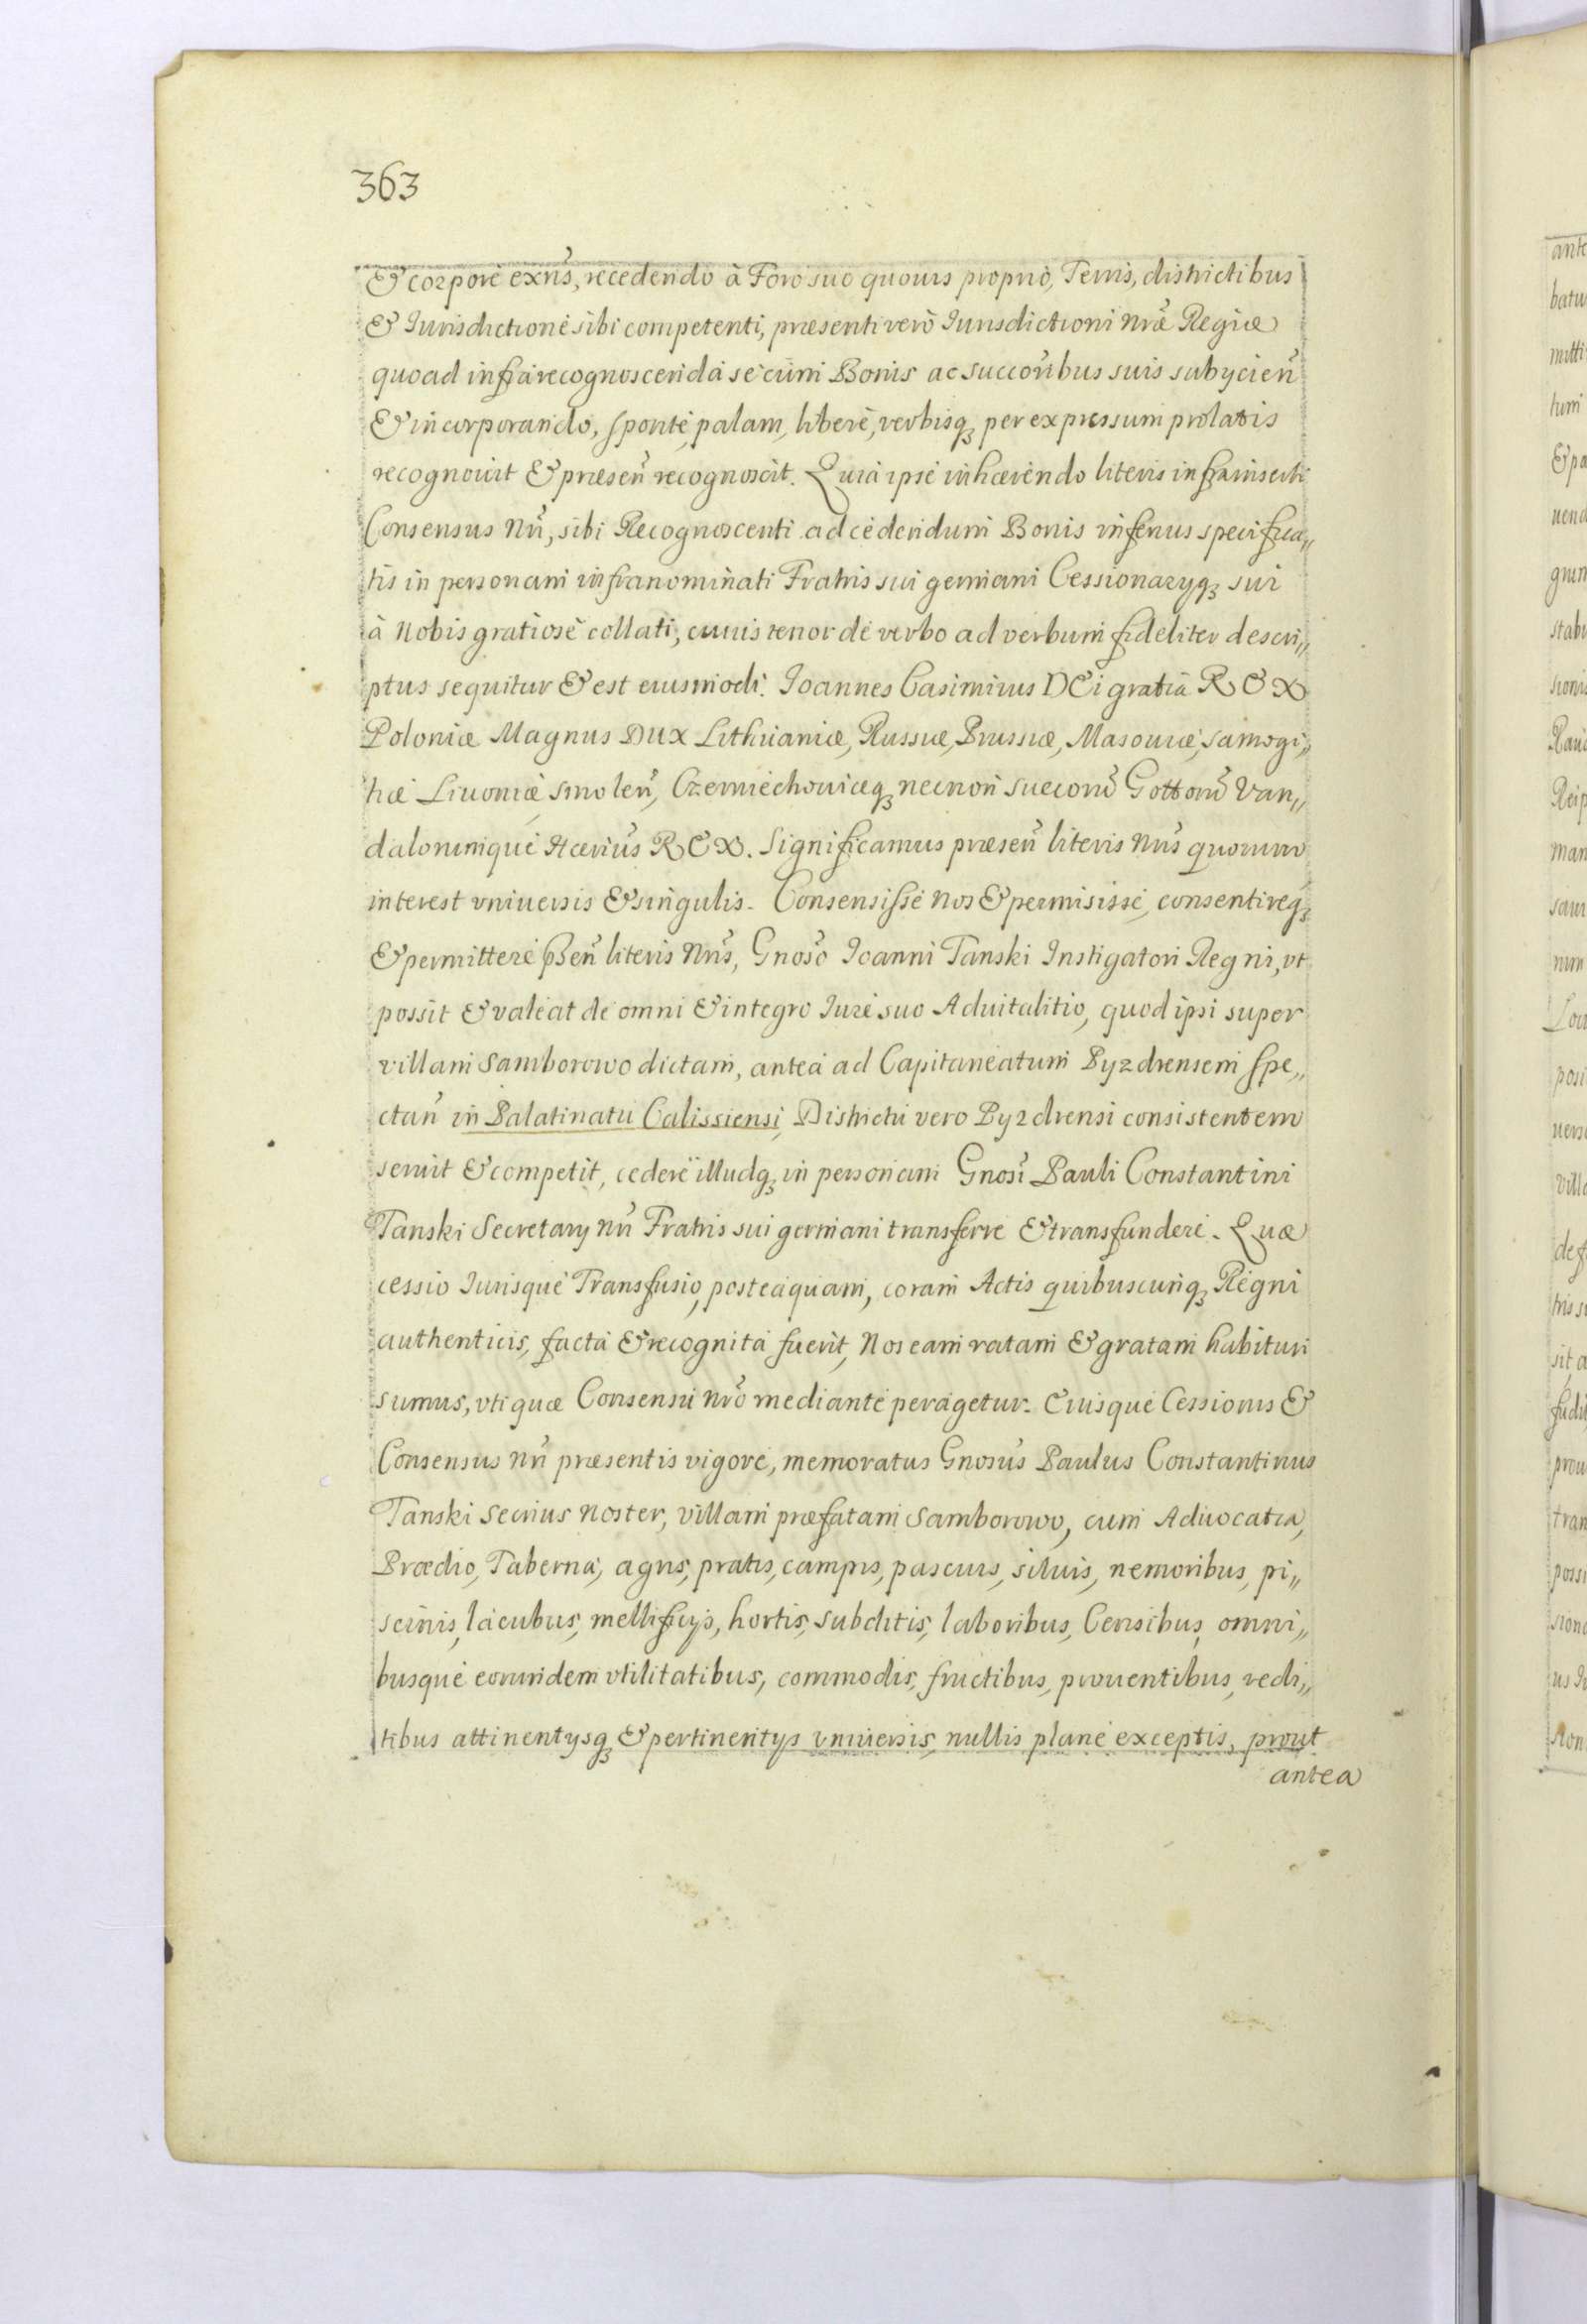 363
& corpore exñs, recedendo à Foro suo quouis proprio, Terris, districtibus
& Iurisdictione sibi competenti, præsenti verò Iurisdictioni nræ Regiæ
quoad infra recognoscenda se cum Bonis ac succoribus suis subycień
& incorporando, sponte, palam, liberè, verbisq; per expressum prolatis
recognouit & præseń recognoscit. Quia ipse inhærendo literis infrainserti
Consensus Nrī, sibi Recognoscenti ad cedendum Bonis inferius specifica„
tis in personam infranominati Fratris sui germani Cessionaryq; sui
à Nobis gratiosè collati, cuius tenor de verbo ad verbum fideliter descri„
ptus sequitur & est eiusmodi. Ioannes Casimirus DEi gratia REX
Poloniæ Magnus Dux Lithuaniæ, Russiæ, Prussiæ, Masouiæ, Samogi„
tiæ Liuoniæ Smoleń, Czerniechouiæq; necnon Suecorū Gottorū Van„
dalorumque Hærius REX. Significamus præseń literis Nris quorum
interest vniuersis & singulis. Consensisse Nos & permisisse, consentireq;
& permittere pseń literis Nris, Gnoso Ioanni Tanski Instigatori Regni, vt
possit & valeat de omni & integro Iure suo Aduitalitio, quod ipsi super
villam Samborowo dictam, antea ad Capitaneatum Pyzdrensem spe„
ctań in Palatinatu Calissiensi, Districtu vero Pyzdrensi consistentem
seruit & competit, cedere illudq; in personam Gnosi Pauli Constantini
Tanski Secretary nrī Fratris sui germani transferre & transfundere. Quæ
cessio Iurisque Transfusio, posteaquam, coram Actis quibuscunq; Regni
authenticis, facta & recognita fuerit, Nos eam ratam & gratam habituri
sumus, vti quæ Consensu nro mediante peragetur. Cuiusque Cessionis &
Consensus nrī præsentis vigore, memoratus Gnosus Paulus Constantinus
Tanski Secrius Noster, villam præfatam Samborowo, cum Aduocatia,
Prædio, Taberna, agris, pratis, campis, pascuis, siluis, nemoribus, pi„
scinis, lacubus, mellificijs, hortis, subditis, laboribus, Censibus, omni„
busque eorundem vtilitatibus, commodis, fructibus, prouentibus, redi„
tibus attinentysq; & pertinentys vniuersis, nullis plane exceptis, prout
antea